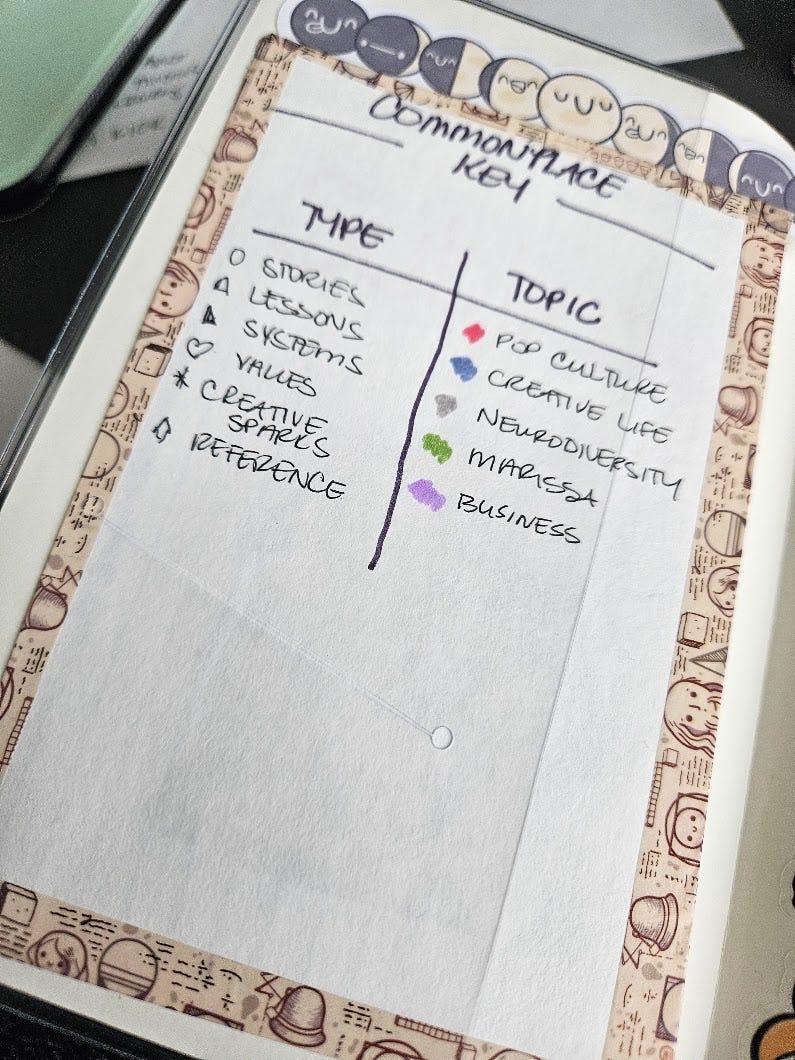 COMMONPLACE
KEY
TYPE
STORIES
LESSONS
SYSTEMS
VALUES
CREATIVE
SPARKS
REFERENCE
TOPIC
POP CULTURE
CREATIVE LIFE
NEURODIVERSITY
MARISSA
BUSINESS